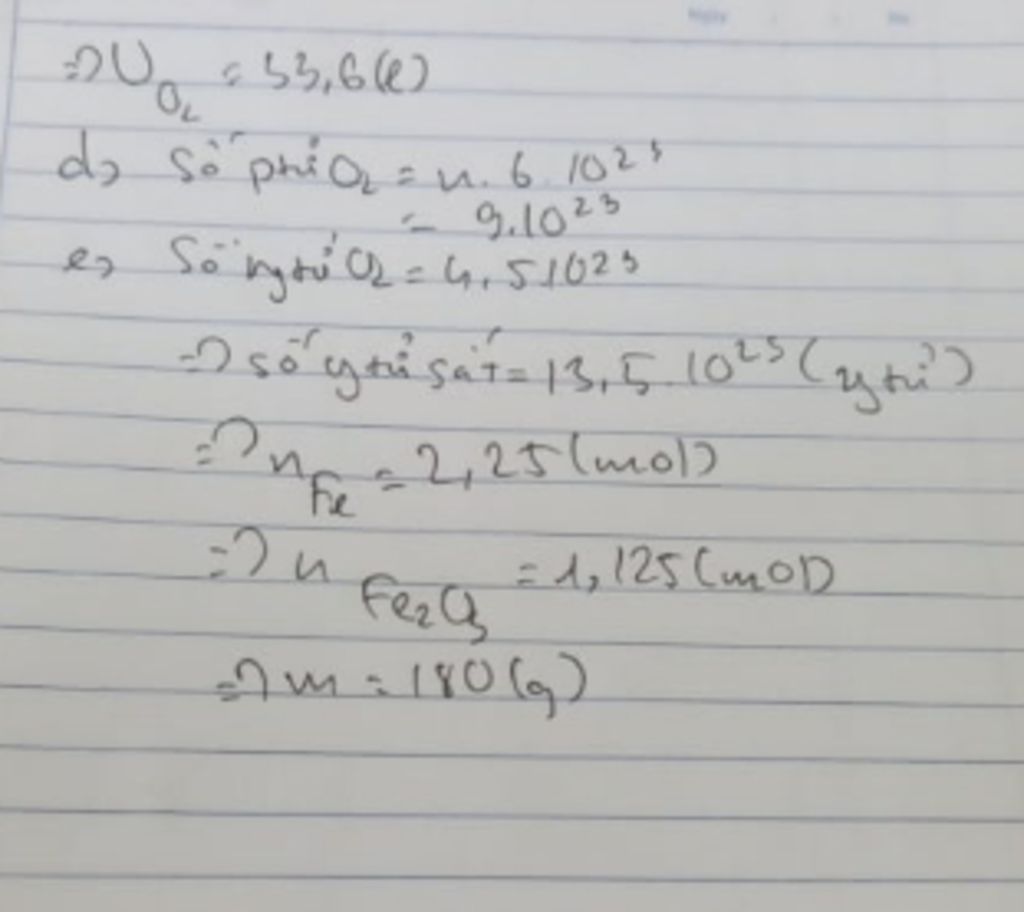 => V O₂ = 33,6(l)
d, Số ptử O₂ = n. 6. 10²³
= 9.10²³
e, Số ngtử O₂ = 4,5 10²³
=> số ngtử sắt = 13,5. 10²³ (ngtử)
=> n Fe = 2,25 (mol)
=> n Fe₂O₃ = 1,125 (mol)
=> m = 180 (g)